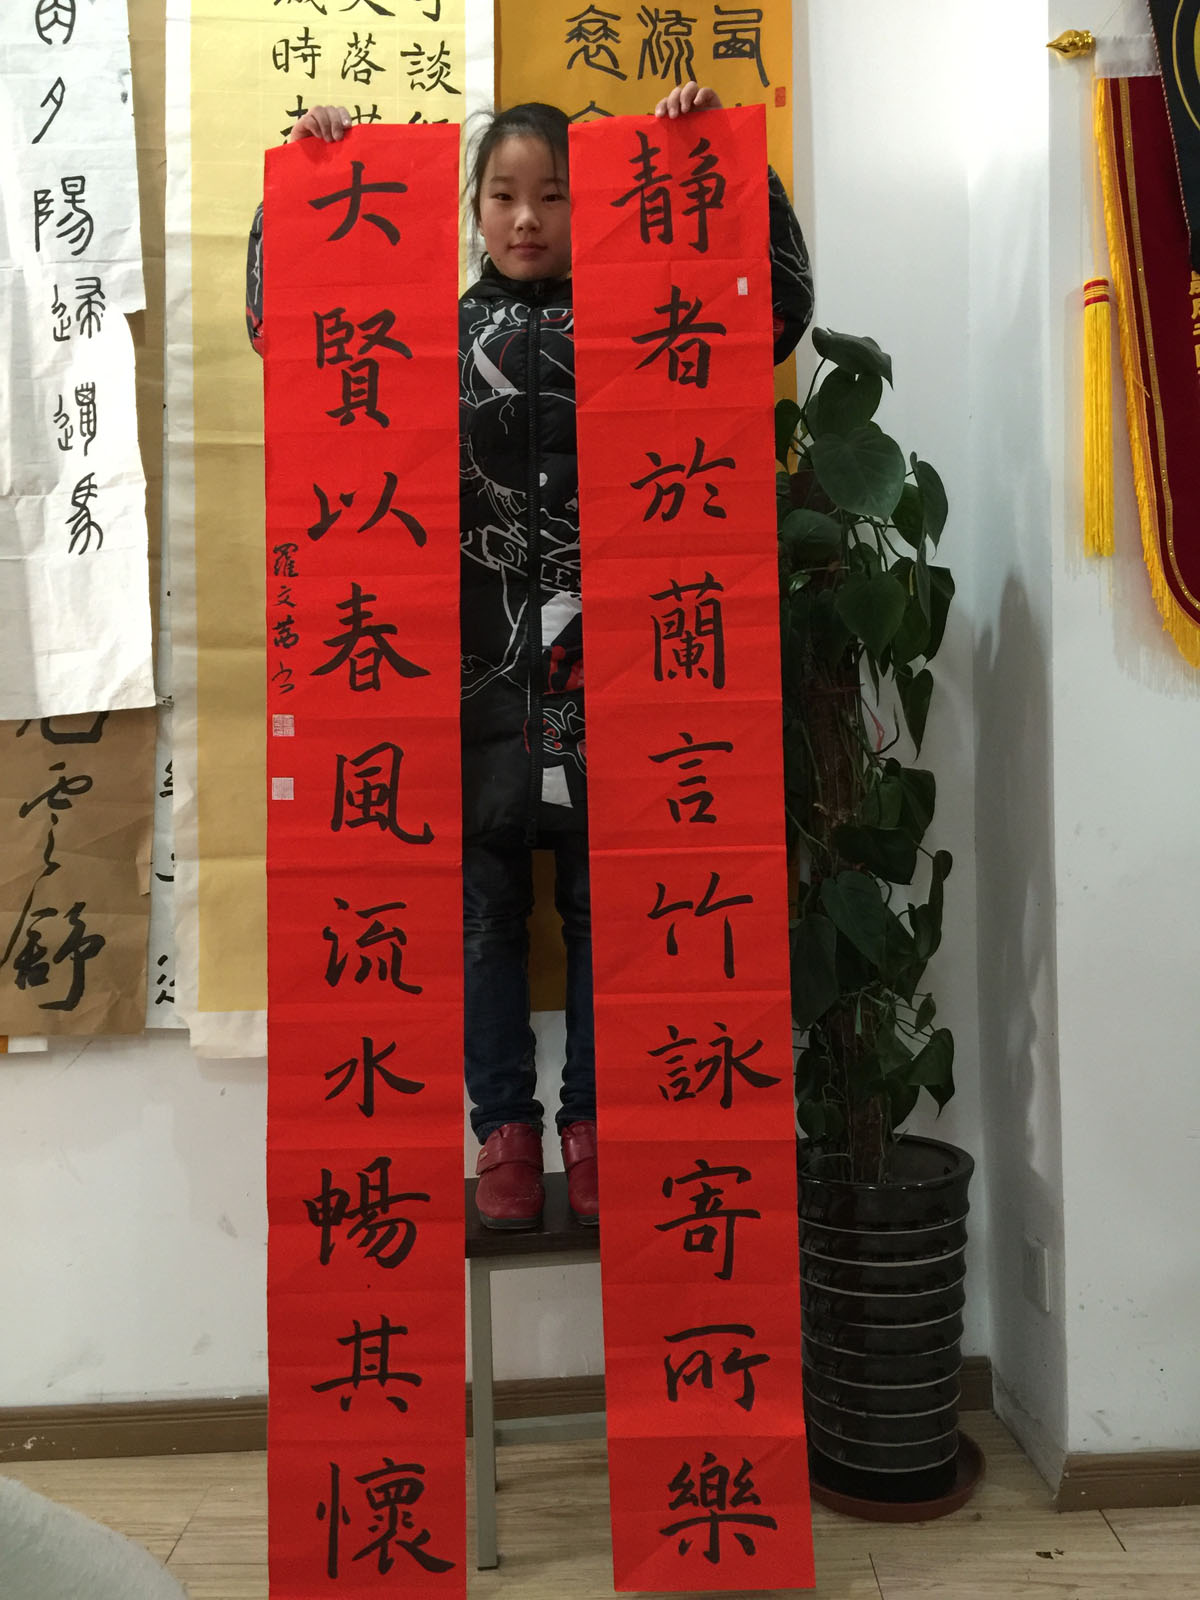 靜者於蘭言竹詠寄所樂
大賢以春風流水暢其懷
羅文茜书
談
落
時
流
慈
夕陽歸遲馬
雲舒